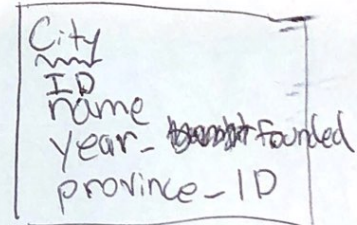 City
ID
name
year_ founded
province_ID